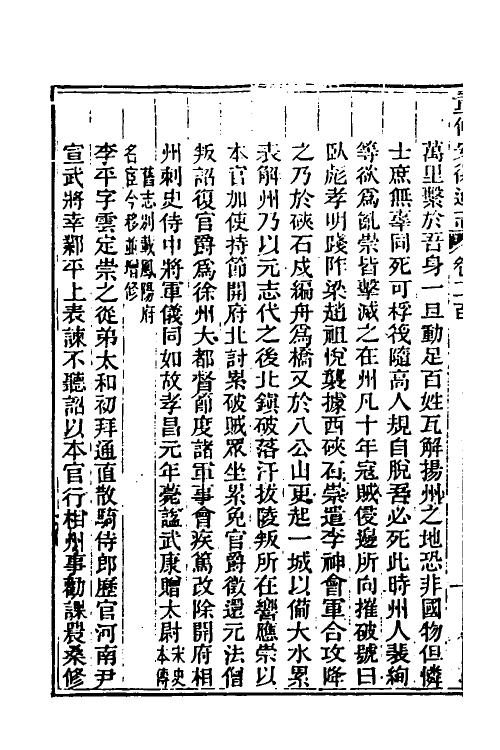 重修安徽通志 卷二百
萬里繫於吾身一旦動足百姓瓦解揚州之地恐非國物但憐
士庶無辜同死可桴筏隨高人規自脫吾必死此時州人裴絢
等欲爲亂崇皆擊滅之在州凡十年寇賊侵邊所向摧破號曰
臥彪孝明踐阼梁趙祖悅襲據西硤石崇遣李神會軍合攻降
之乃於硤石戍編舟爲橋又於八公山更起一城以備大水累
表解州乃以元志代之後北鎭破落汗拔陵叛所在響應崇以
本官加使持節開府北討累破賊眾坐累免官爵徵還元法僧
叛詔復官爵爲徐州大都督節度諸軍事會疾篤改除開府相
州刺史侍中將軍儀同如故孝昌元年薨諡武康贈太尉宋史本傳
舊志列載鳳陽府
名宦今移並增修
李平字雲定崇之從弟太和初拜通直散騎侍郎歷官河南尹
宣武將幸鄴平上表諫不聽詔以本官行相州事勸課農桑修